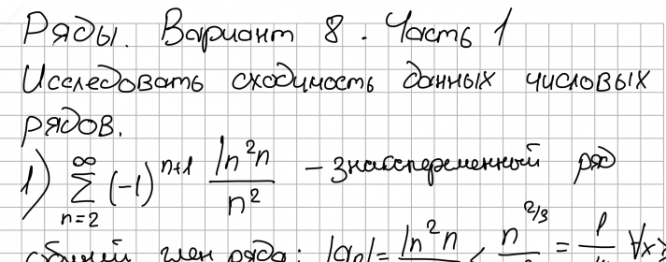 Ряды. Вариант 8. Часть 1
Исследовать сходимость данных числовых
рядов.
1) ∑_{n=2}^{∞} (-1)^{n+1} \frac{ln^2 n}{n^2} - знакопеременный ряд
член ряда: |a_n| = ln^2 n < n^{2/3} = 1 ∀x>